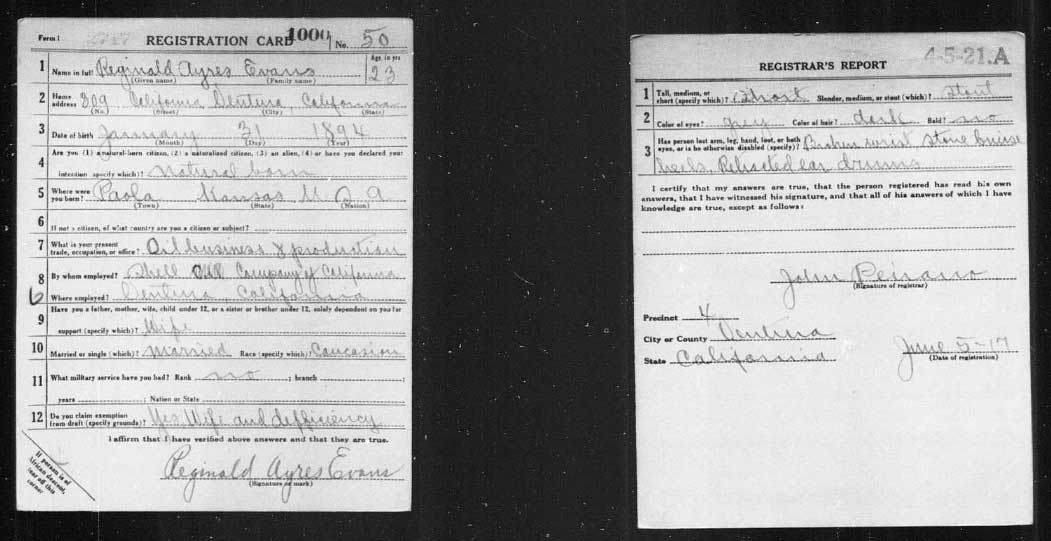 Form 1 REGISTRATION CARD 1000 No. 50
1 Name in full Reginald Ayres Evans Age, in yrs 23
(Given name) (Family name)
2 Home address 309 California Ventura, California
(No.) (Street) (City) (State)
3 Date of birth January 31 1894
(Month) (Day) (Year)
4 Are you (1) a natural-born citizen, (2) a naturalized citizen, (3) an alien, (4) or have you declared your
intention (specify which)? natural born
5 Where were you born? Paola Kansas U S A
(Town) (State) (Nation)
6 If not a citizen, of what country are you a citizen or subject?
7 What is your present trade, occupation, or office? Oil business & production
8 By whom employed? Shell Oil Company of California
Where employed? Ventura, California
9 Have you a father, mother, wife, child under 12, or a sister or brother under 12, solely dependent on you for
support (specify which)? Wife
10 Married or single (which)? Married Race (specify which)? Caucasion
11 What military service have you had? Rank no ; branch ;
years ; Nation or State
12 Do you claim exemption from draft (specify grounds)? Yes Wife and defficiency
I affirm that I have verified above answers and that they are true.
Reginald Ayres Evans
(Signature or mark)
If person is of
African descent,
tear off this
corner
4-5-21.A
REGISTRAR'S REPORT
1 Tall, medium, or short (specify which)? Short Slender, medium, or stout (which)? stout
2 Color of eyes? grey Color of hair? dark Bald? no
3 Has person lost arm, leg, hand, foot, or both eyes, or is he otherwise disabled (specify)? Broken wrist, stone bruise
heels, Retracted ear drums
I certify that my answers are true, that the person registered has read his own
answers, that I have witnessed his signature, and that all of his answers of which I have
knowledge are true, except as follows:
John Peirano
(Signature of registrar)
Precinct 4
City or County Ventura
State California
June 5-17
(Date of registration)